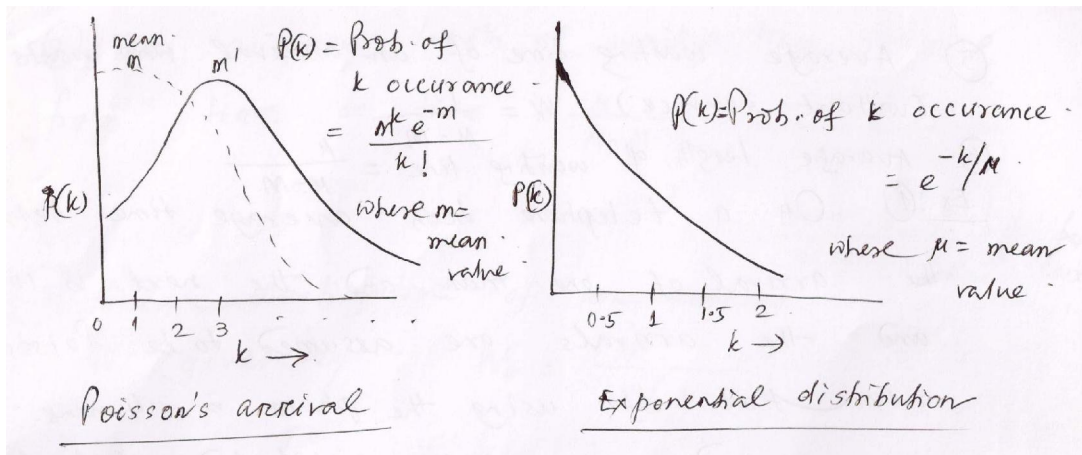 mean
m
m'
P(k) = Prob. of
k occurance
= m^k e^-m
k!
where m =
mean
value
P(k)
0 1 2 3
k →
Poisson's arrival
P(k) = Prob. of k occurance
= e^-k/μ
where μ = mean
value
P(k)
0.5 1 1.5 2
k →
Exponential distribution